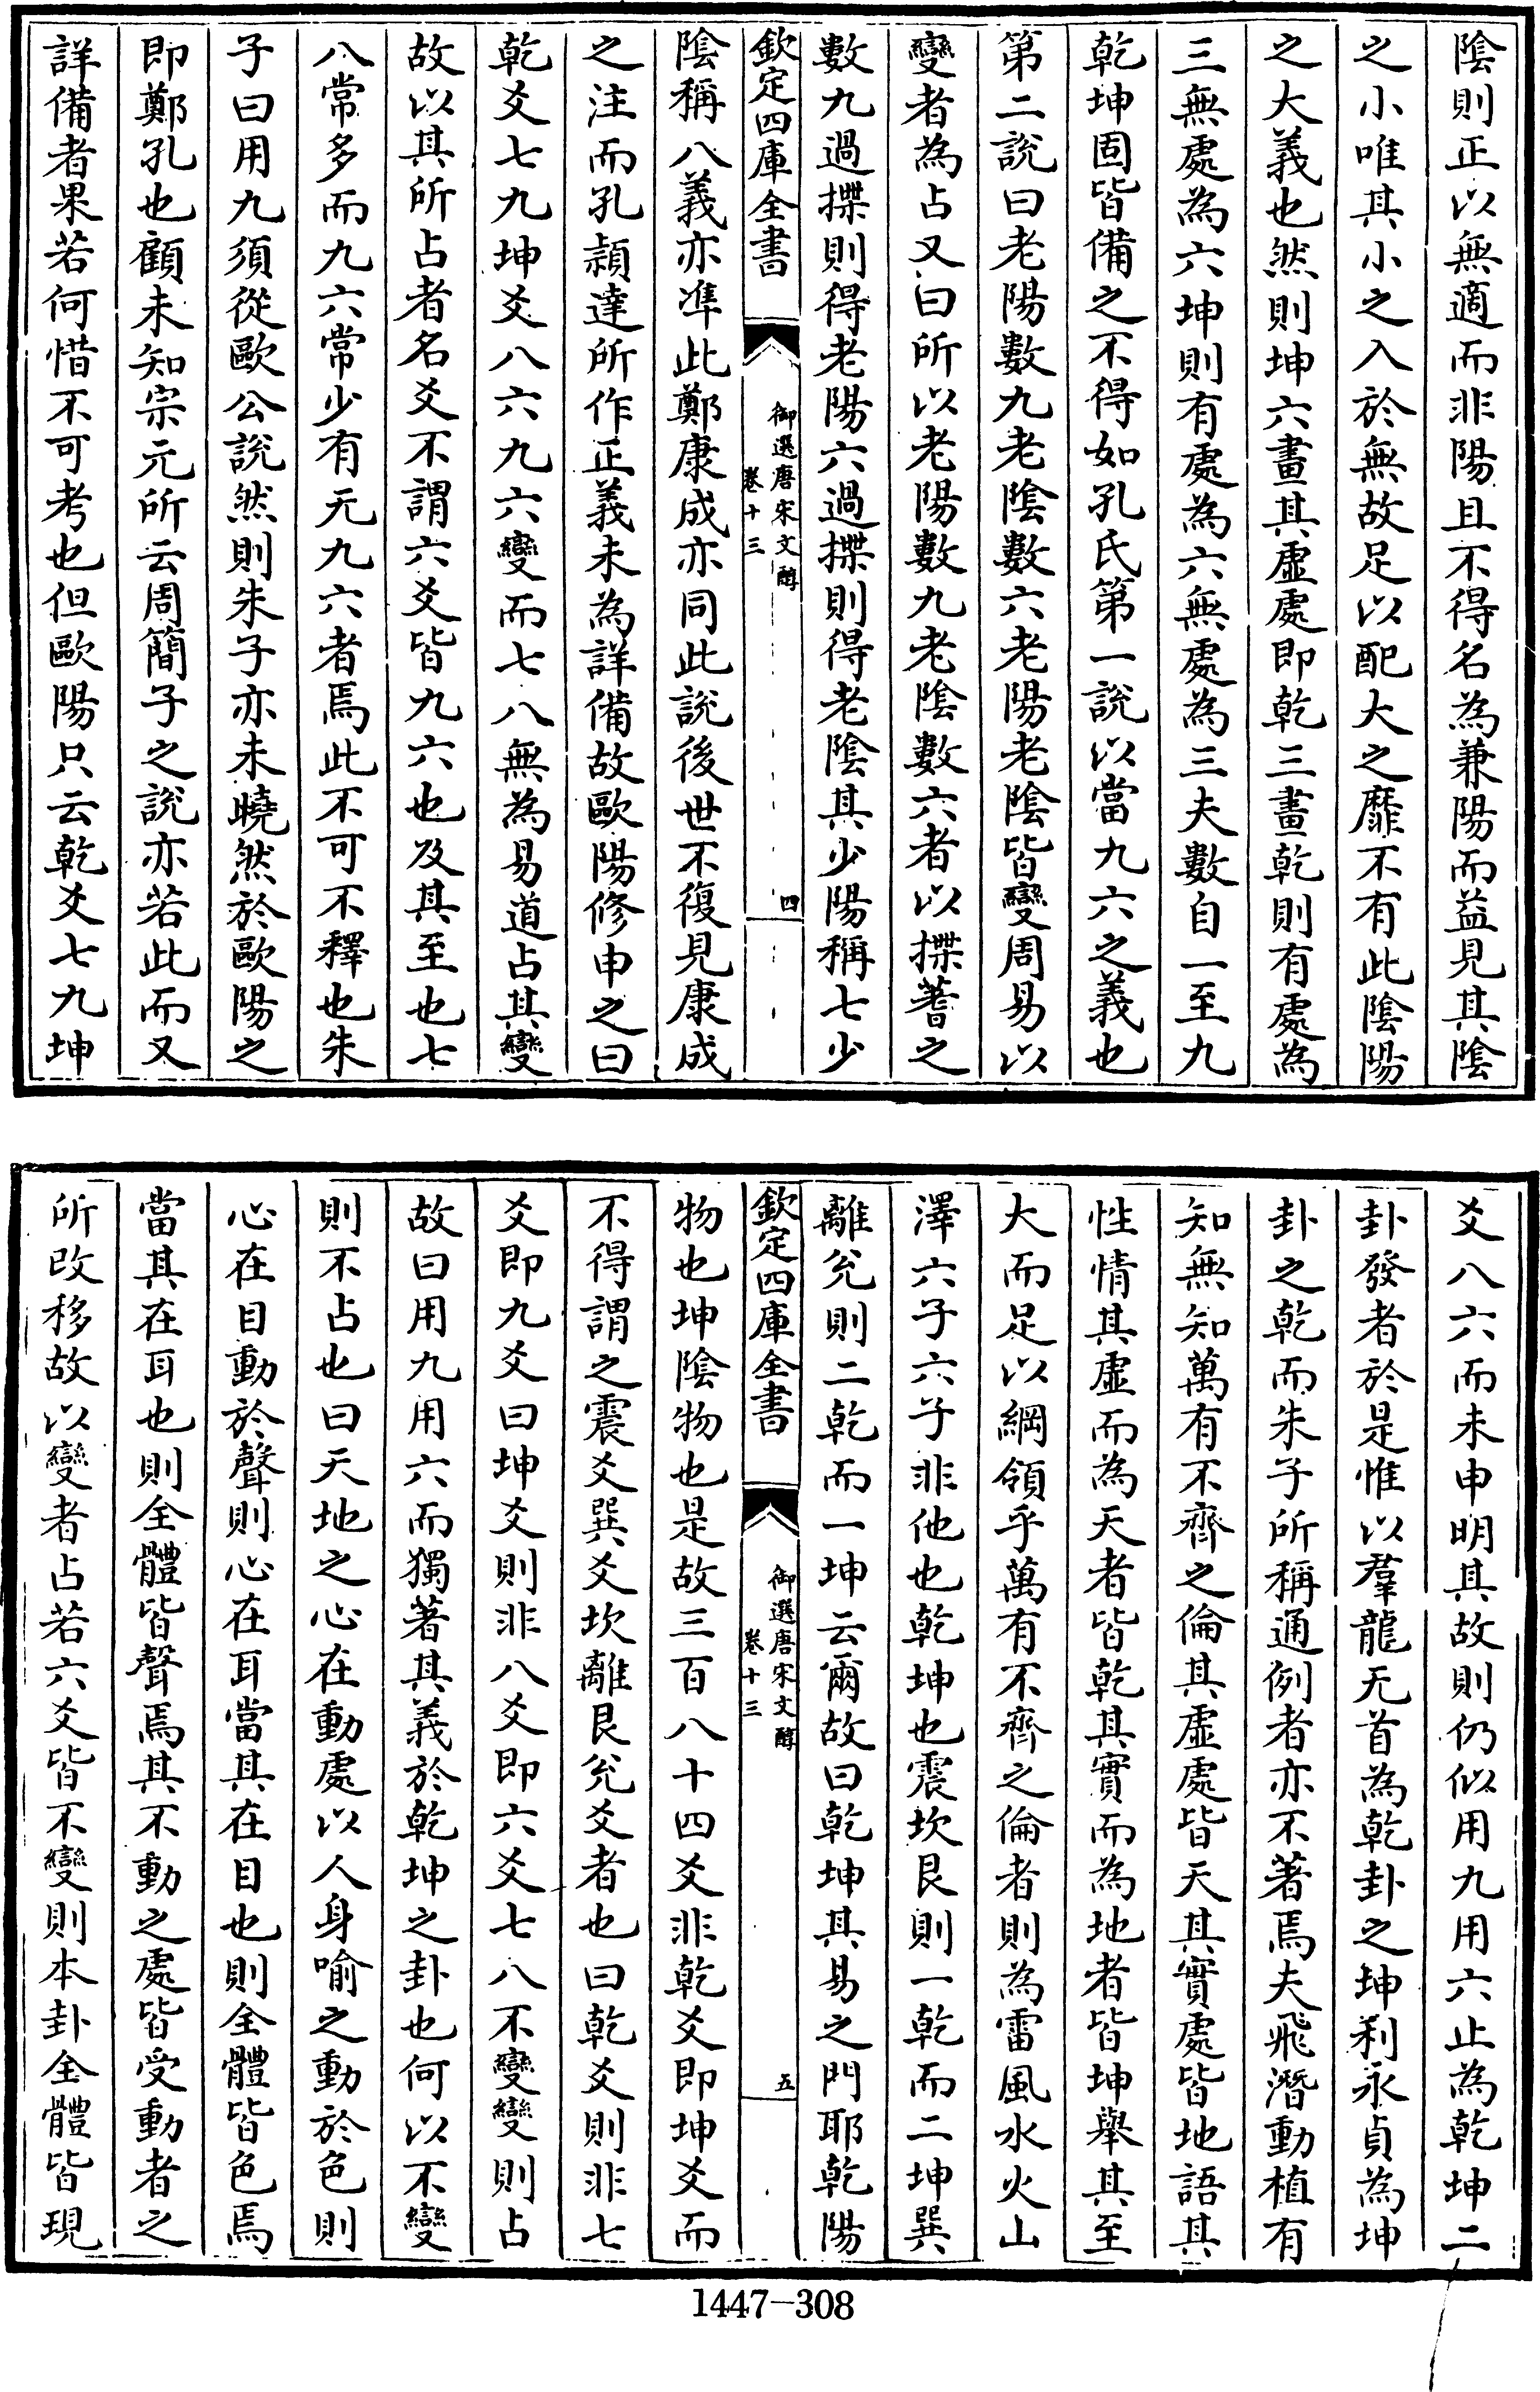 陰則正以無適而非陽且不得名為兼陽而益見其陰
之小唯其小之入於無故足以配大之靡不有此陰陽
之大義也然則坤六畫其虛處即乾三畫乾則有處為
三無處為六坤則有處為六無處為三夫數自一至九
乾坤固皆備之不得如孔氏第一說以當九六之義也
第二說曰老陽數九老陰數六老陽老陰皆變周易以
變者為占又曰所以老陽數九老陰數六者以揲蓍之
數九過揲則得老陽六過揲則得老陰其少陽稱七少
欽定四庫全書
御選唐宋文醇
卷十三
四
陰稱八義亦準此鄭康成亦同此說後世不復見康成
之注而孔頴達所作正義未為詳備故歐陽修申之曰
乾爻七九坤爻八六九六變而七八無為易道占其變
故以其所占者名爻不謂六爻皆九六也及其至也七
八常多而九六常少有无九六者焉此不可不釋也朱
子曰用九須從歐公說然則朱子亦未曉然於歐陽之
即鄭孔也顧未知宗元所云周簡子之說亦若此而又
詳備者果若何惜不可考也但歐陽只云乾爻七九坤
爻八六而未申明其故則仍似用九用六止為乾坤二
卦發者於是惟以羣龍无首為乾卦之坤利永貞為坤
卦之乾而朱子所稱通例者亦不著焉夫飛潛動植有
知無知萬有不齊之倫其虛處皆天其實處皆地語其
性情其虛而為天者皆乾其實而為地者皆坤舉其至
大而足以綱領乎萬有不齊之倫者則為雷風水火山
澤六子六子非他也乾坤也震坎艮則一乾而二坤巽
離兌則二乾而一坤云爾故曰乾坤其易之門耶乾陽
欽定四庫全書
御選唐宋文醇
卷十三
五
物也坤陰物也是故三百八十四爻非乾爻即坤爻而
不得謂之震爻巽爻坎離艮兌爻者也曰乾爻則非七
爻即九爻曰坤爻則非八爻即六爻七八不變變則占
故曰用九用六而獨著其義於乾坤之卦也何以不變
則不占也曰天地之心在動處以人身喻之動於色則
心在目動於聲則心在耳當其在目也則全體皆色焉
當其在耳也則全體皆聲焉其不動之處皆受動者之
所改移故以變者占若六爻皆不變則本卦全體皆現
1447-308